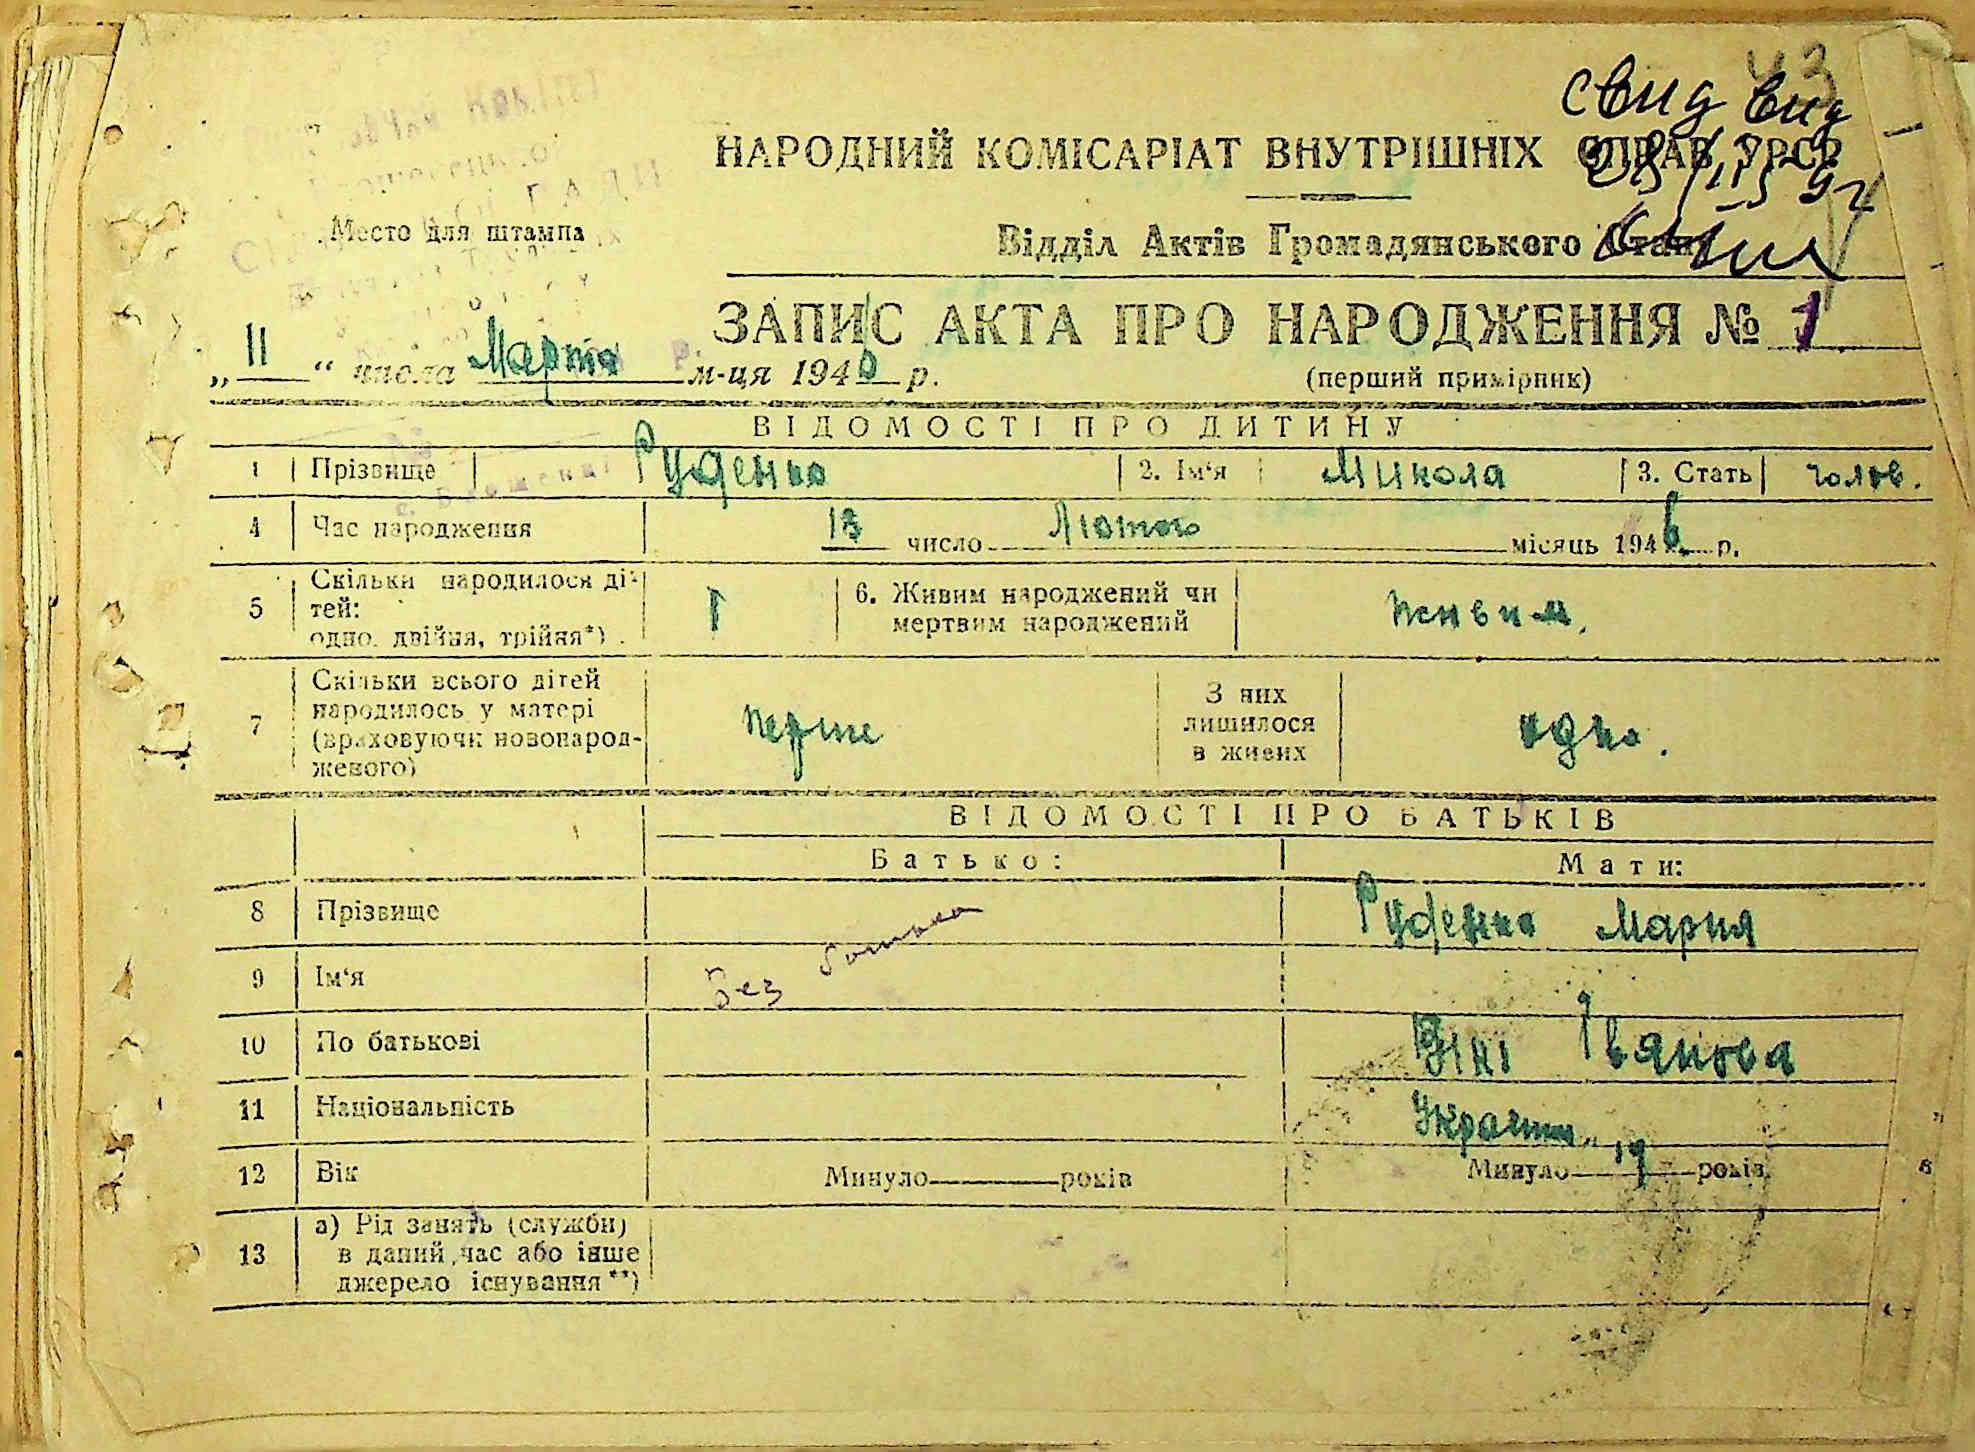 43
свид вид
НАРОДНИЙ КОМІСАРІАТ ВНУТРІШНІХ СПРАВ УРСР
Место для штампа
Відділ Актів Громадянського Стан
ЗАПИС АКТА ПРО НАРОДЖЕННЯ № 1
„ 11 “ числа Марта м-ця 1946 р.
(перший примірник)
ВІДОМОСТІ ПРО ДИТИНУ
1 Прізвище Руденко 2. Ім'я Микола 3. Стать голов.
4 Час народження 13 число Лютого місяць 1946 р.
5 Скільки народилося ді-
тей:
одно, двійня, трійня*) . 1
6. Живим народжений чи
мертвим народжений живим.
7 Скільки всього дітей
народилось у матері
(враховуючи новонарод-
женого) перше
З них
лишилося
в живих одно.
ВІДОМОСТІ ПРО БАТЬКІВ
Батько: Мати:
8 Прізвище Руденко Мария
9 Ім'я Без батька
10 По батькові Івановa
11 Національність
12 Вік Минуло років Минуло 19 років
13 а) Рід занять (служби)
в даний час або інше
джерело існування**)